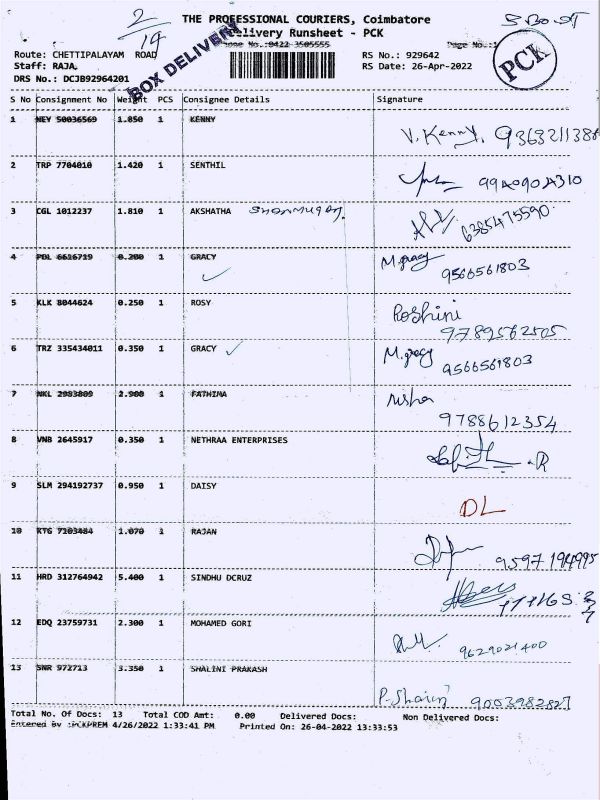 2/19
THE PROFESSIONAL COURIERS, Coimbatore
Delivery Runsheet - PCK
Phone No.:0422 3505555 Page No.:1
BOX DELIVERY
PCK
Route: CHETTIPALAYAM ROAD RS No.: 929642
Staff: RAJA RS Date: 26-Apr-2022
DRS No.: DCJB92964201
S No Consignment No Weight PCS Consignee Details Signature
1 NEY 50036569 1.050 1 KENNY
V. Kenny.
2 TRP 7704010 1.420 1 SENTHIL
3 CGL 1012237 1.810 1 AKSHATHA
6385475590
4 PBL 6616719 0.200 1 GRACY M.gracy 9566561803
5 KLK 8044624 0.250 1 ROSY Roshini
9789562505
6 TRZ 335434011 0.350 1 GRACY M.gracy 9566561803
7 NKL 2983809 2.900 1 FATHIMA
9788612354
8 VNB 2645917 0.350 1 NETHRAA ENTERPRISES
9 SLM 294192737 0.950 1 DAISY DL
10 KTG 7103484 1.070 1 RAJAN
9597 194995
11 HRD 312764942 5.400 1 SINDHU DCRUZ
12 EDQ 23759731 2.300 1 MOHAMED GORI
9629021400
13 SNR 972713 3.350 1 SHALINI PRAKASH
9003982827
Total No. Of Docs: 13 Total COD Amt: 0.00 Delivered Docs: Non Delivered Docs:
Entered By :PCKPREM 4/26/2022 1:33:41 PM Printed On: 26-04-2022 13:33:53